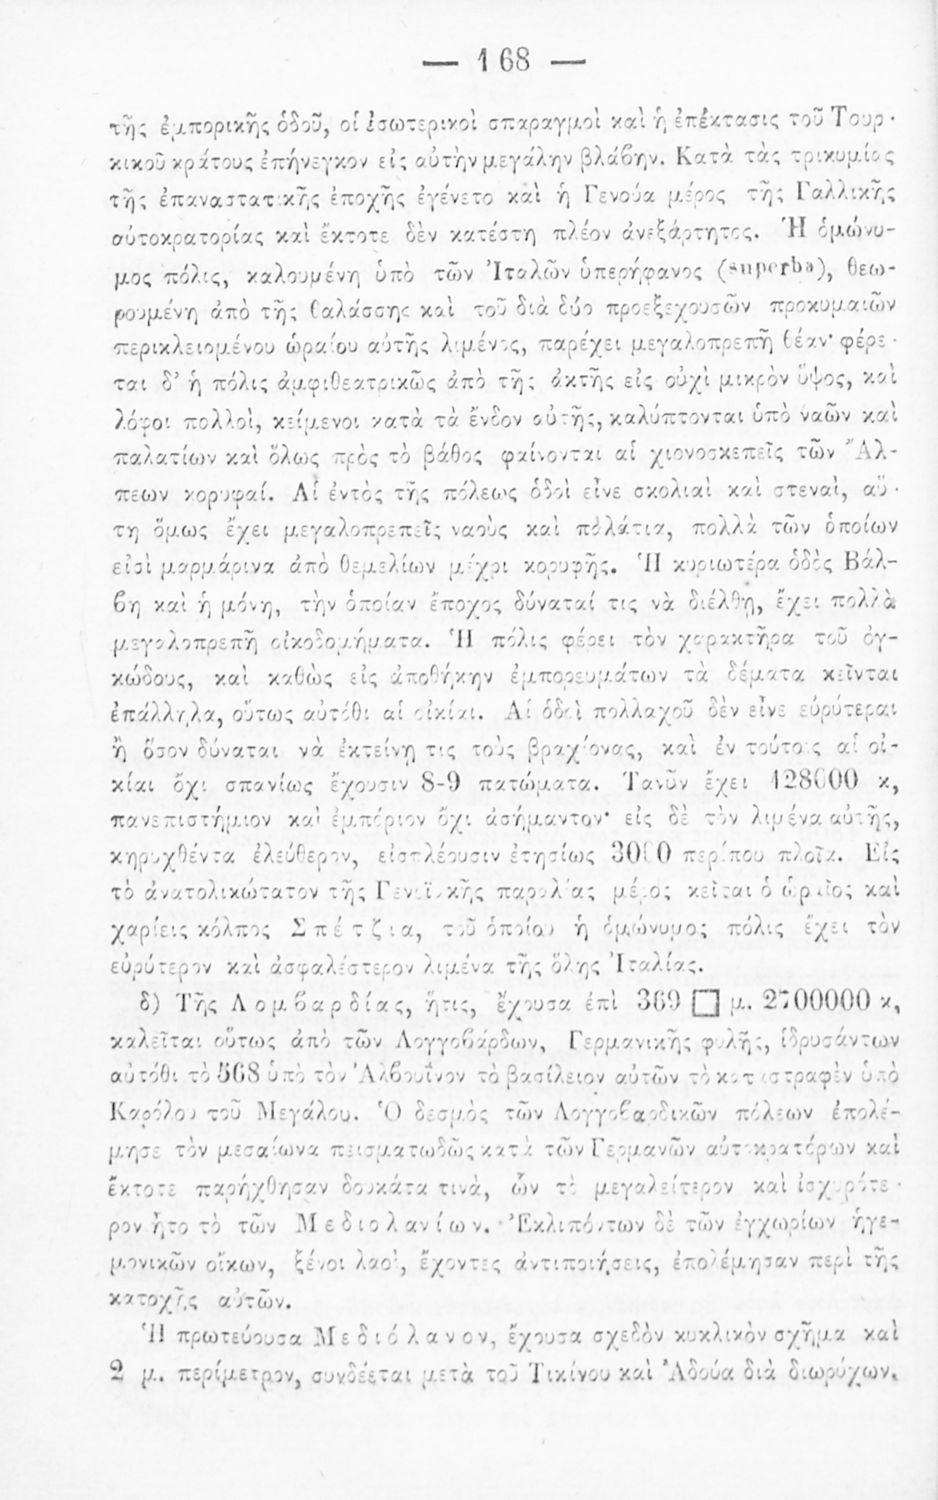 — 168 —
τῆς ἐμπορικῆς ὁδοῦ, οἱ ἐσωτερικοὶ σπαραγμοὶ καὶ ἡ ἐπέκτασις τοῦ Τουρ-
κικοῦ κράτους ἐπήνεγκον εἰς αὐτὴν μεγάλην βλάβην. Κατὰ τὰς τρικυμίας
τῆς ἐπαναστατικῆς ἐποχῆς ἐγένετο καὶ ἡ Γενούα μέρος τῆς Γαλλικῆς
αὐτοκρατορίας καὶ ἔκτοτε δὲν κατέστη πλέον ἀνεξάρτητος. Ἡ ὁμώνυ-
μος πόλις, καλουμένη ὑπὸ τῶν Ἰταλῶν ὑπερήφανος (superba), θεω-
ρουμένη ἀπὸ τῆς θαλάσσης καὶ τοῦ διὰ δύο προεξεχουσῶν προκυμαιῶν
περικλειομένου ὡραίου αὐτῆς λιμένος, παρέχει μεγαλοπρεπῆ θέαν· φέρε-
ται δ' ἡ πόλις ἀμφιθεατρικῶς ἀπὸ τῆς ἀκτῆς εἰς οὐχὶ μικρὸν ὕψος, καὶ
λόφοι πολλοὶ, κείμενοι κατὰ τὰ ἔνδον αὐτῆς, καλύπτονται ὑπὸ ναῶν καὶ
παλατίων καὶ ὅλως πρὸς τὸ βάθος φαίνονται αἱ χιονοσκεπεῖς τῶν Ἄλ-
πεων κορυφαί. Αἱ ἐντὸς τῆς πόλεως ὁδοὶ εἶνε σκολιαὶ καὶ στεναὶ, αὕ-
τη ὅμως ἔχει μεγαλοπρεπεῖς ναοὺς καὶ παλάτια, πολλὰ τῶν ὁποίων
εἰσὶ μαρμάρινα ἀπὸ θεμελίων μέχρι κορυφῆς. Ἡ κυριωτέρα ὁδὸς Βάλ-
βη καὶ ἡ μόνη, τὴν ὁποίαν ἔποχος δύναταί τις νὰ διέλθῃ, ἔχει πολλὰ
μεγαλοπρεπῆ οἰκοδομήματα. Ἡ πόλις φέρει τὸν χαρακτῆρα τοῦ ὀγ-
κώδους, καὶ καθὼς εἰς ἀποθήκην ἐμπορευμάτων τὰ δέματα κεῖνται
ἐπάλληλα, οὕτως αὐτόθι αἱ οἰκίαι. Αἱ ὁδοὶ πολλαχοῦ δὲν εἶνε εὐρύτεραι
ἢ ὅσον δύναται νὰ ἐκτείνῃ τις τοὺς βραχίονας, καὶ ἐν τούτοις αἱ οἰ-
κίαι ὄχι σπανίως ἔχουσιν 8-9 πατώματα. Τανῦν ἔχει 128000 κ,
πανεπιστήμιον καὶ ἐμπόριον ὄχι ἀσήμαντον· εἰς δὲ τὸν λιμένα αὐτῆς,
κηρυχθέντα ἐλεύθερον, εἰσπλέουσιν ἐτησίως 3000 περίπου πλοῖα. Εἰς
τὸ ἀνατολικώτατον τῆς Γενοϊκῆς παραλίας μέρος κεῖται ὁ ὡραῖος καὶ
χαρίεις κόλπος Σπέτζια, τοῦ ὁποίου ἡ ὁμώνυμος πόλις ἔχει τὸν
εὐρύτερον καὶ ἀσφαλέστερον λιμένα τῆς ὅλης Ἰταλίας.
δ) Τῆς Λομβαρδίας, ἥτις, ἔχουσα ἐπὶ 369 □ μ. 2700000 κ,
καλεῖται οὕτως ἀπὸ τῶν Λογγοβάρδων, Γερμανικῆς φυλῆς, ἱδρυσάντων
αὐτόθι τὸ 568 ὑπὸ τὸν Ἀλβουῖνον τὸ βασίλειον αὐτῶν τὸ καταστραφὲν ὑπὸ
Καρόλου τοῦ Μεγάλου. Ὁ δεσμὸς τῶν Λογγοβαρδικῶν πόλεων ἐπολέ-
μησε τὸν μεσαίωνα πεισματωδῶς κατὰ τῶν Γερμανῶν αὐτοκρατόρων καὶ
ἔκτοτε παρήχθησαν δουκάτα τινὰ, ὧν τὸ μεγαλείτερον καὶ ἰσχυρότε-
ρον ἦτο τὸ τῶν Μεδιολανίων. Ἐκλιπόντων δὲ τῶν ἐγχωρίων ἡγε-
μονικῶν οἴκων, ξένοι λαοὶ, ἔχοντες ἀντιποιήσεις, ἐπολέμησαν περὶ τῆς
κατοχῆς αὐτῶν.
Ἡ πρωτεύουσα Μεδιόλανον, ἔχουσα σχεδὸν κυκλικὸν σχῆμα καὶ
2 μ. περίμετρον, συνδέεται μετὰ τοῦ Τικίνου καὶ Ἀδούα διὰ διωρύχων.